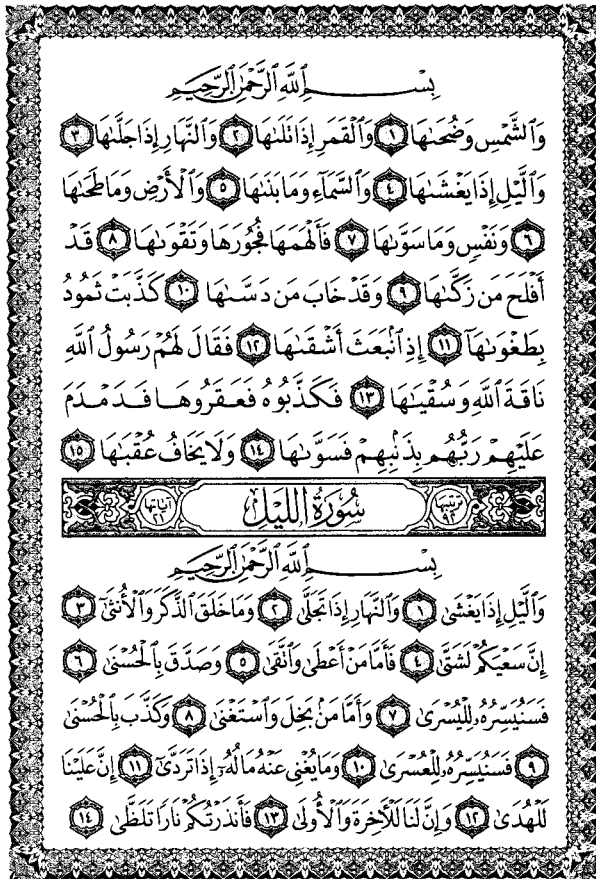 بِسْمِ ٱللَّهِ ٱلرَّحْمَٰنِ ٱلرَّحِيمِ
وَٱلشَّمْسِ وَضُحَىٰهَا ١ وَٱلْقَمَرِ إِذَا تَلَىٰهَا ٢ وَٱلنَّهَارِ إِذَا جَلَّىٰهَا ٣
وَٱلَّيْلِ إِذَا يَغْشَىٰهَا ٤ وَٱلسَّمَآءِ وَمَا بَنَىٰهَا ٥ وَٱلْأَرْضِ وَمَا طَحَىٰهَا
٦ وَنَفْسٍ وَمَا سَوَّىٰهَا ٧ فَأَلْهَمَهَا فُجُورَهَا وَتَقْوَىٰهَا ٨ قَدْ
أَفْلَحَ مَن زَكَّىٰهَا ٩ وَقَدْ خَابَ مَن دَسَّىٰهَا ١٠ كَذَّبَتْ ثَمُودُ
بِطَغْوَىٰهَآ ١١ إِذِ ٱنۢبَعَثَ أَشْقَىٰهَا ١٢ فَقَالَ لَهُمْ رَسُولُ ٱللَّهِ
نَاقَةَ ٱللَّهِ وَسُقْيَٰهَا ١٣ فَكَذَّبُوهُ فَعَقَرُوهَا فَدَمْدَمَ
عَلَيْهِمْ رَبُّهُم بِذَنۢبِهِمْ فَسَوَّىٰهَا ١٤ وَلَا يَخَافُ عُقْبَٰهَا ١٥
ترتيبها ٩٢ سُورَةُ اللَّيْلِ آياتها ٢١
بِسْمِ ٱللَّهِ ٱلرَّحْمَٰنِ ٱلرَّحِيمِ
وَٱلَّيْلِ إِذَا يَغْشَىٰ ١ وَٱلنَّهَارِ إِذَا تَجَلَّىٰ ٢ وَمَا خَلَقَ ٱلذَّكَرَ وَٱلْأُنثَىٰٓ ٣
إِنَّ سَعْيَكُمْ لَشَتَّىٰ ٤ فَأَمَّا مَنْ أَعْطَىٰ وَٱتَّقَىٰ ٥ وَصَدَّقَ بِٱلْحُسْنَىٰ ٦
فَسَنُيَسِّرُهُۥ لِلْيُسْرَىٰ ٧ وَأَمَّا مَنۢ بَخِلَ وَٱسْتَغْنَىٰ ٨ وَكَذَّبَ بِٱلْحُسْنَىٰ
٩ فَسَنُيَسِّرُهُۥ لِلْعُسْرَىٰ ١٠ وَمَا يُغْنِى عَنْهُ مَالُهُۥٓ إِذَا تَرَدَّىٰٓ ١١ إِنَّ عَلَيْنَا
لَلْهُدَىٰ ١٢ وَإِنَّ لَنَا لَلْءَاخِرَةَ وَٱلْأُولَىٰ ١٣ فَأَنذَرْتُكُمْ نَارًا تَلَظَّىٰ ١٤